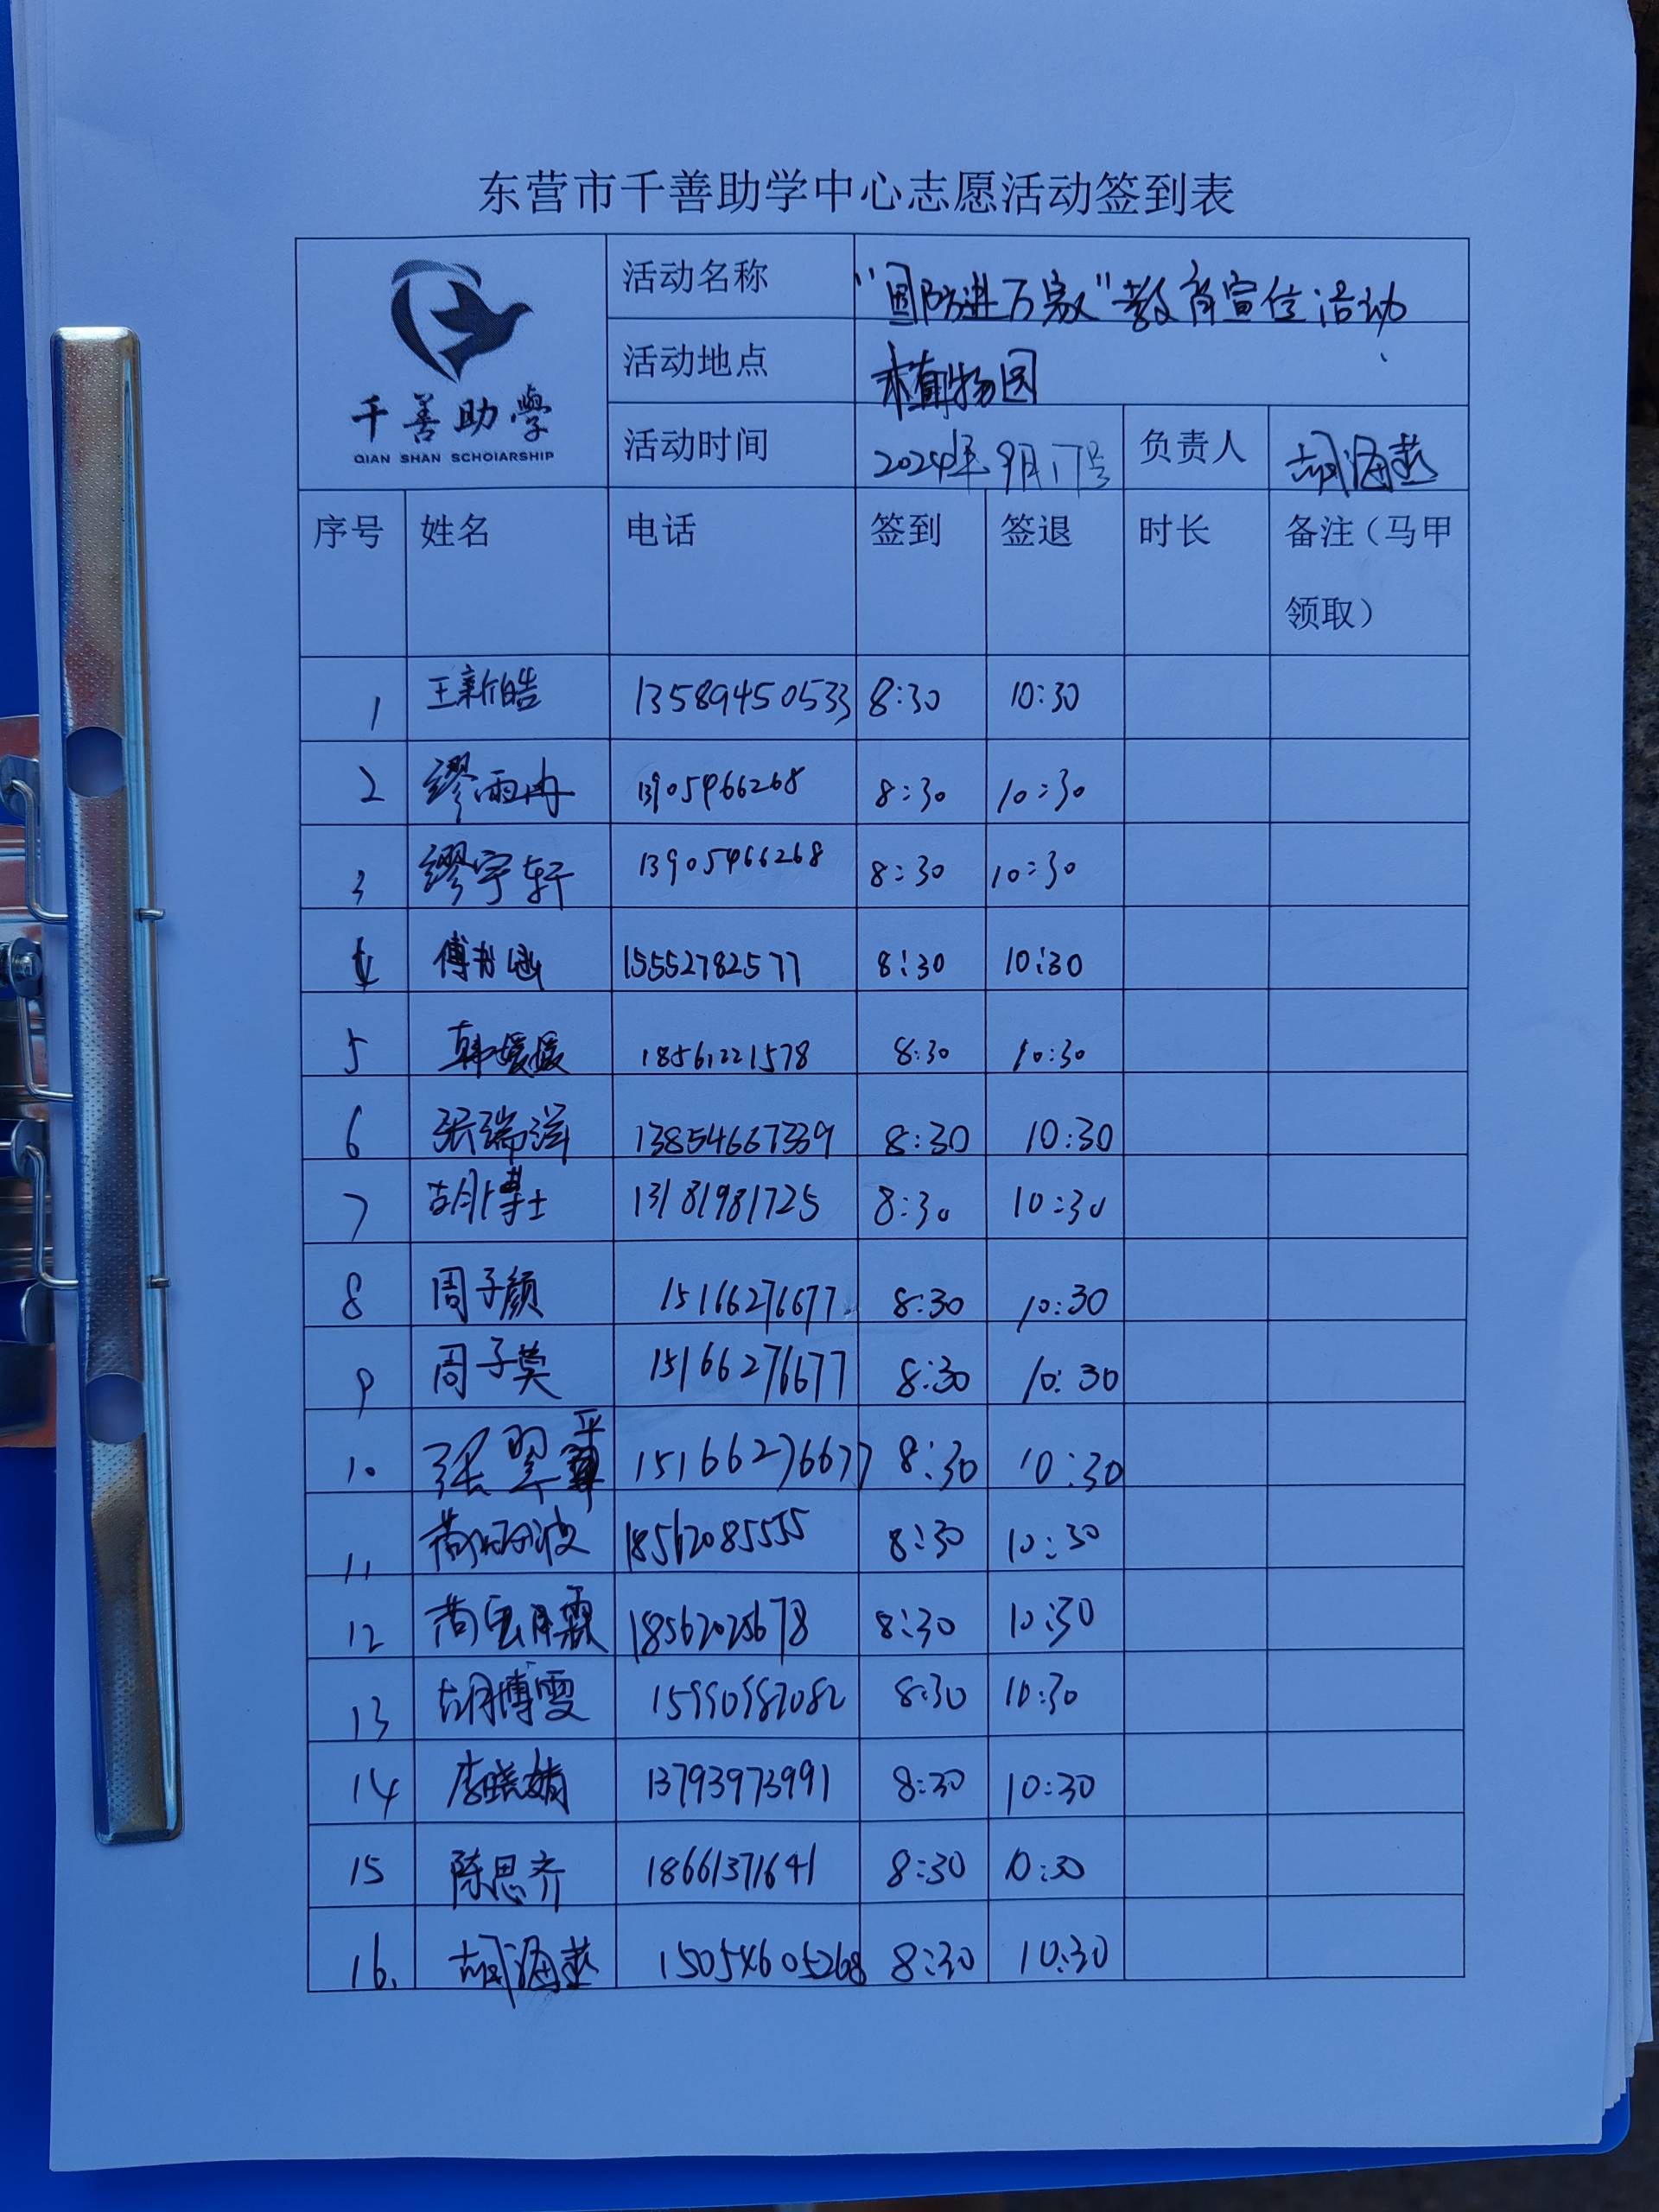 东营市千善助学中心志愿活动签到表
千善助學
QIAN SHAN SCHOlARSHIP
活动名称 “国防进万家”教育宣传活动
活动地点 植物园
活动时间 2024年9月17号 负责人 胡海燕
序号 姓名 电话 签到 签退 时长 备注（马甲
领取）
1 王新皓 13589450533 8:30 10:30
2 缪雨冉 13905466268 8:30 10:30
3 缪宇轩 13905466268 8:30 10:30
4 傅书涵 15552782577 8:30 10:30
5 韩媛媛 18561221578 8:30 10:30
6 张瑞洋 13854667339 8:30 10:30
7 胡博士 13181981725 8:30 10:30
8 周子颜 15166276677 8:30 10:30
9 周子莫 15166276677 8:30 10:30
10 张翠 15166276677 8:30 10:30
11 18562085555 8:30 10:30
12 18562025678 8:30 10:30
13 胡博雯 15990987082 8:30 10:30
14 李晓娟 13793973991 8:30 10:30
15 陈思齐 18661371641 8:30 10:30
16. 胡海燕 15054605268 8:30 10:30